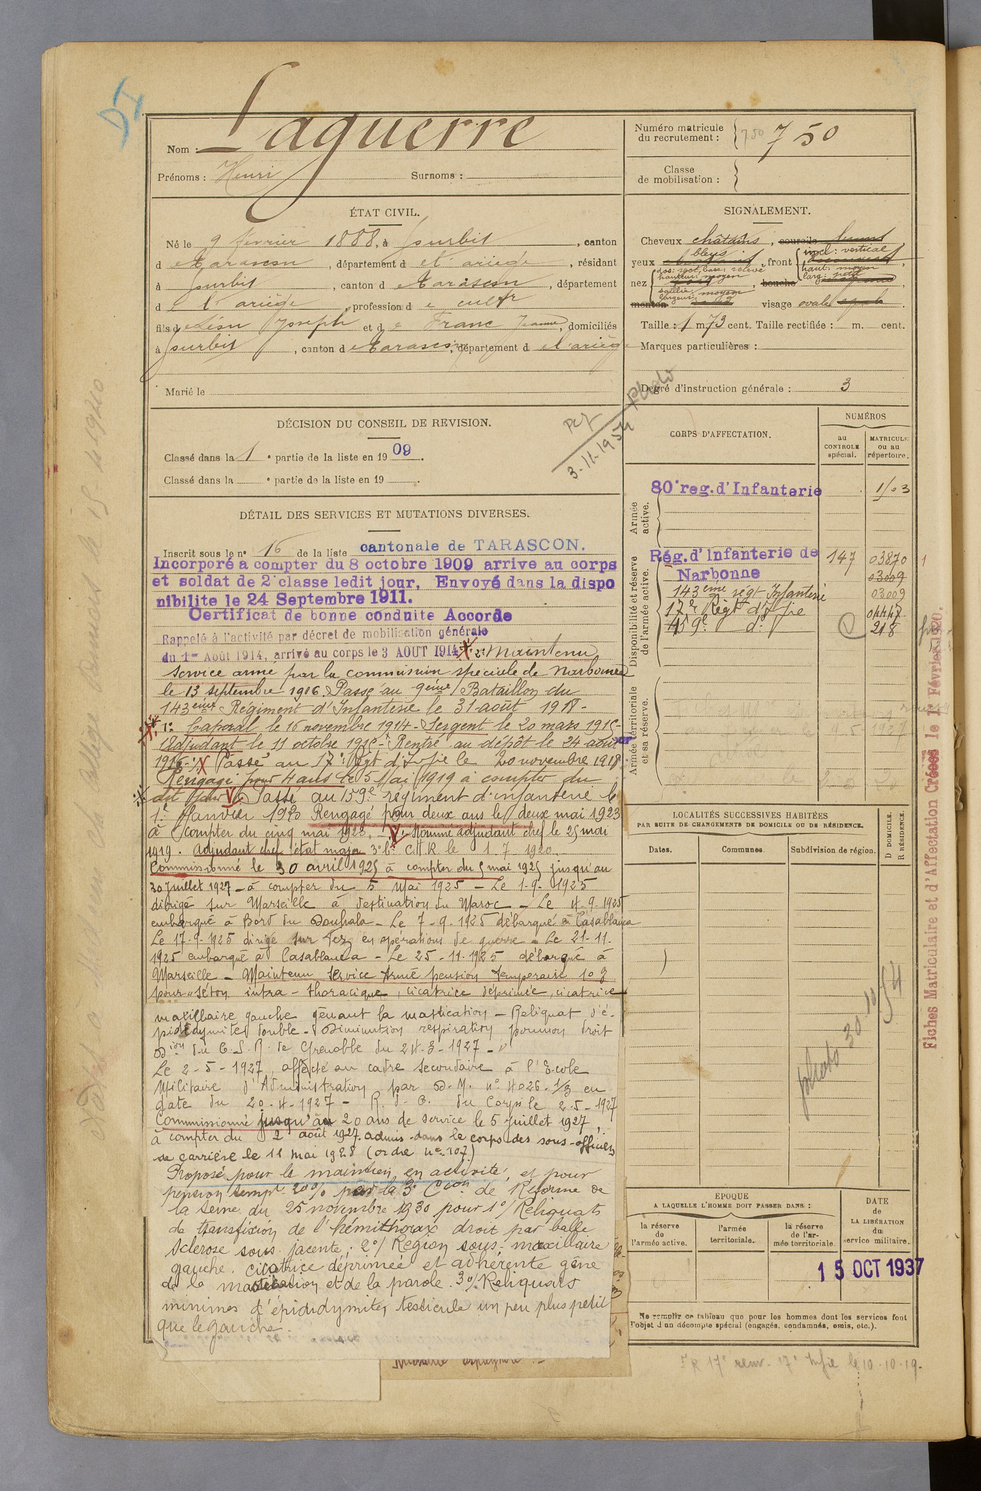 DI
Nom : Laguerre
Prénoms : Henri Surnoms :
Numéro matricule du recrutement : 750 750
Classe de mobilisation :
ÉTAT CIVIL.
Né le 9 février 1888, à Surbit, canton
d e Tarascon, département d e l'ariège, résidant
à Surbit, canton d e Tarascon, département
d e l'ariège, profession d e cultr
fils d Joseph et d e Franc Jeanne, domiciliés
à Surbit, canton d e Tarascon, département d e l'ariège
Marié le
SIGNALEMENT.
Cheveux châtains, sourcils bruns
yeux bleus, front incl: vertical haut: moyen larg:
nez dos: rect, base: relevé hauteur: moyen saillie: moyen largeur: moyen, bouche
menton visage ovale
Taille : 1 m 73 cent. Taille rectifiée : m. cent.
Marques particulières :
Degré d'instruction générale : 3
DÉCISION DU CONSEIL DE REVISION.
Classé dans la 1 e partie de la liste en 1909.
Classé dans la e partie de la liste en 19
3-11-1954 Photo
DÉTAIL DES SERVICES ET MUTATIONS DIVERSES.
Inscrit sous le no 16 de la liste cantonale de TARASCON.
Incorporé à compter du 8 octobre 1909 arrive au corps
et soldat de 2e classe ledit jour. Envoyé dans la dispo
nibilite le 24 Septembre 1911.
Certificat de bonne conduite Accorde
Rappelé à l'activité par décret de mobilisation générale
du 1er Août 1914, arrivé au corps le 3 AOUT 1914 Maintenu
service armé par la commission spéciale de Narbonne
le 13 septembre 1916. Passé au 9eme Bataillon du
143eme Régiment d'Infanterie le 31 août 1918-
Caporal le 16 novembre 1914- Sergent le 20 mars 1915-
Adjudant le 11 octobre 1915- Rentré au dépôt le 24 août
1916- Passé au 17e Régt d'Infie le 20 novembre 1918
Rengagé pour 4 ans le 5 Mai 1919 à compter du
dit jour Passé au 159e régiment d'infanterie le
1er Janvier 1920 Rengagé pour deux ans le deux mai 1923
à compter du cinq mai 1923. Nommé adjudant chef le 25 mai
1919. Adjudant chef état major 3e b. C.M.R le 1.7.1920.
Commissionné le 30 avril 1925 à compter du 5 mai 1925 jusqu'au
30 Juillet 1927 - à compter du 5 Mai 1925 - Le 1-9-1925
dirigé sur Marseille à destination du Maroc - Le 4.9.1925
embarqué à Bord du Doukala - Le 7-9-1925 débarqué à Casablanca
Le 17-9-1925 dirigé sur Fez en opérations de guerre - Le 21-11-
1925 embarqué à Casablanca - Le 25-11-1925 débarqué à
Marseille - Maintenu Service Armé pension Temporaire 10%
pour séton intra-thoracique, cicatrice déprimée, cicatrice
maxillaire gauche gênant la mastication - Reliquat d'é-
pididymite double - Diminution respiration poumon droit
Dion du C.S.R. de Grenoble du 24-3-1927 -
Le 2-5-1927, affecté au cadre secondaire à l'Ecole
Militaire d'Administration, par D.M. no 4026-1/3 en
date du 20-4-1927 - R. d. C. du Corps le 2-5-1927
Commissionné jusqu'à 20 ans de service le 5 Juillet 1927,
à compter du 2 août 1927. admis dans le corps des sous-officiers
de carrière le 11 mai 1928 (ordre no 107)
Proposé pour le maintien en activité, et pour
pension tempre 20% par la 3e Cion de Réforme de
la Seine du 25 novembre 1930 pour 1°/ Reliquats
de transfixion de l'hémithorax droit par balle
Sclérose sous-jacente, 2°/ Région sous-maxillaire
gauche. cicatrice déprimée et adhérente gêne
de la mastication et de la parole. 3°/ Reliquats
minimes d'épididymite, testicule un peu plus petit
que le gauche.
CORPS D'AFFECTATION.
NUMÉROS
au CONTROLE spécial.
MATRICULE ou au répertoire.
Armée active.
80e reg. d'Infanterie 1/03
Disponibilité et réserve de l'armée active.
Rég. d'Infanterie de Narbonne 147 03870
03009
143eme régt Infanterie 03009
17e Régt d'Infie 04447
159e do 218
Armée territoriale et sa réserve.
LOCALITÉS SUCCESSIVES HABITÉES
PAR SUITE DE CHANGEMENTS DE DOMICILE OU DE RÉSIDENCE.
Dates. Communes. Subdivision de région. D DOMICILE. R RÉSIDENCE.
photo 30-10-54
ÉPOQUE
A LAQUELLE L'HOMME DOIT PASSER DANS :
la réserve de l'armée active.
l'armée territoriale.
la réserve de l'armée territoriale.
DATE de LA LIBÉRATION du service militaire.
15 OCT 1937
Ne remplir ce tableau que pour les hommes dont les services font
l'objet d'un décompte spécial (engagés, condamnés, omis, etc.).
Fiches Matriculaire et d'Affectation Créées le 1er Février 1920.
le 10-10-19-